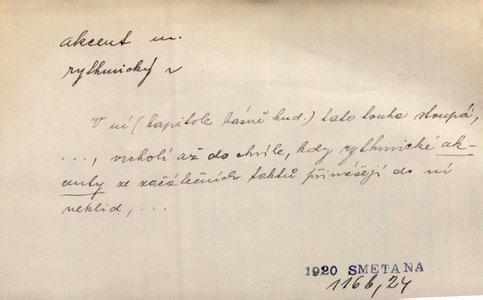 akcent m.
rythmický
V ní (kapitole básně hud.) tato touha stoupá,
..., vrcholí až do chvíle, kdy rythmické ak-
centy ze začátečních taktů přinášejí do ní
neklid, ...
1920 SMETANA
116b, 24